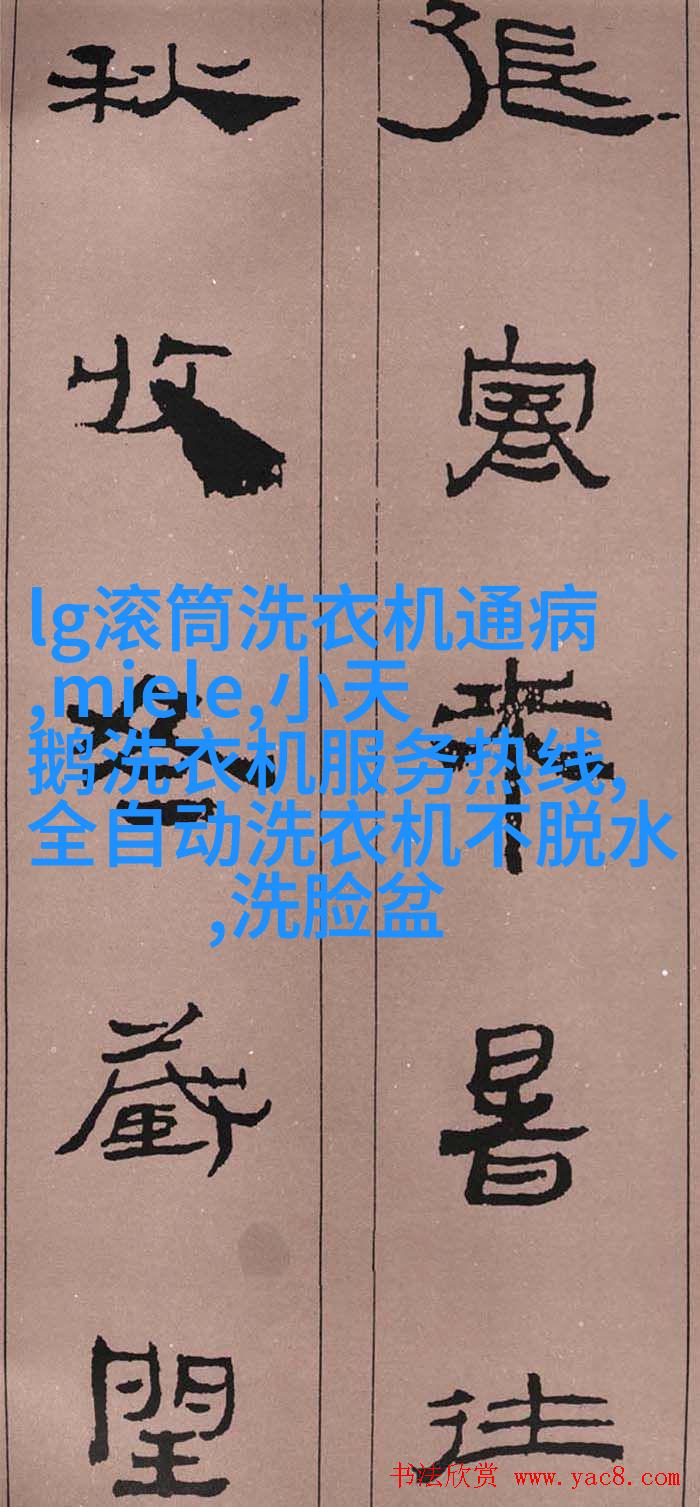 張寒來暑往
秋收冬藏閏
lg滚筒洗衣机通病
,miele,小天
鹅洗衣机服务热线,
全自动洗衣机不脱水
,洗脸盆
书法欣赏 www.yac8.com